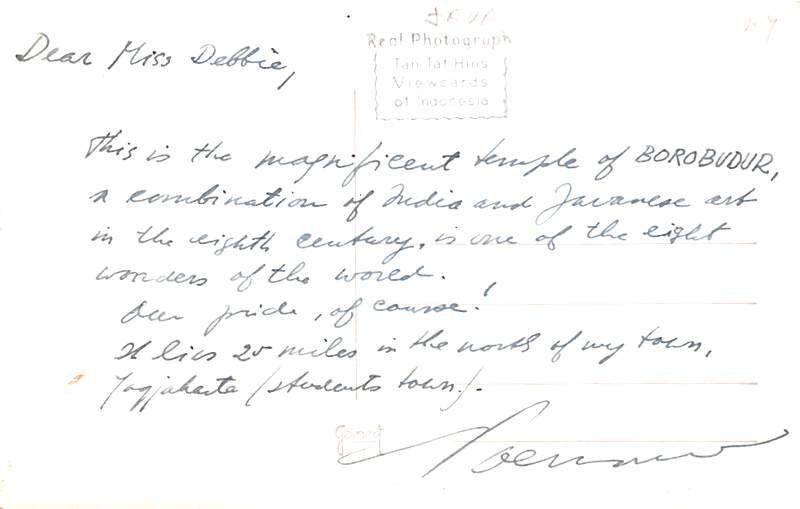 JAVA
Dear Miss Debbie,
Real Photograph
Tan Tat Hins
Viewcards
of Indonesia
This is the magnificent temple of BOROBUDUR,
a combination of India and Javanese art
in the eighth century, is one of the eight
wonders of the world.
Our pride, of course!
It lies 25 miles in the north of my town,
Jogjakarta (students town).